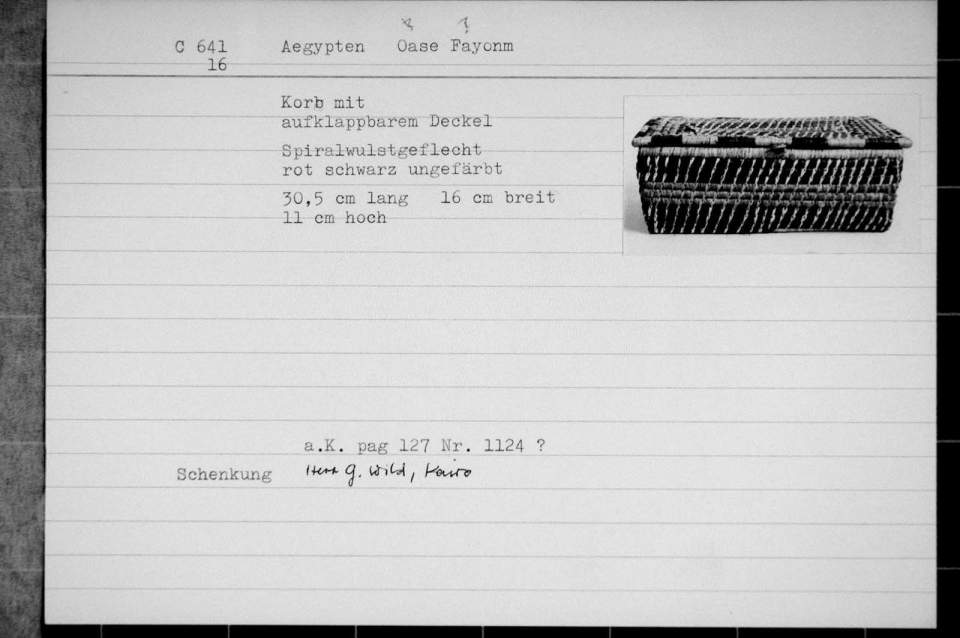 C 641 Aegypten Oase Fayonm
16
Korb mit
aufklappbarem Deckel
Spiralwulstgeflecht
rot schwarz ungefärbt
30,5 cm lang 16 cm breit
11 cm hoch
a.K. pag 127 Nr. 1124 ?
Schenkung Herr G. Wild, Kairo